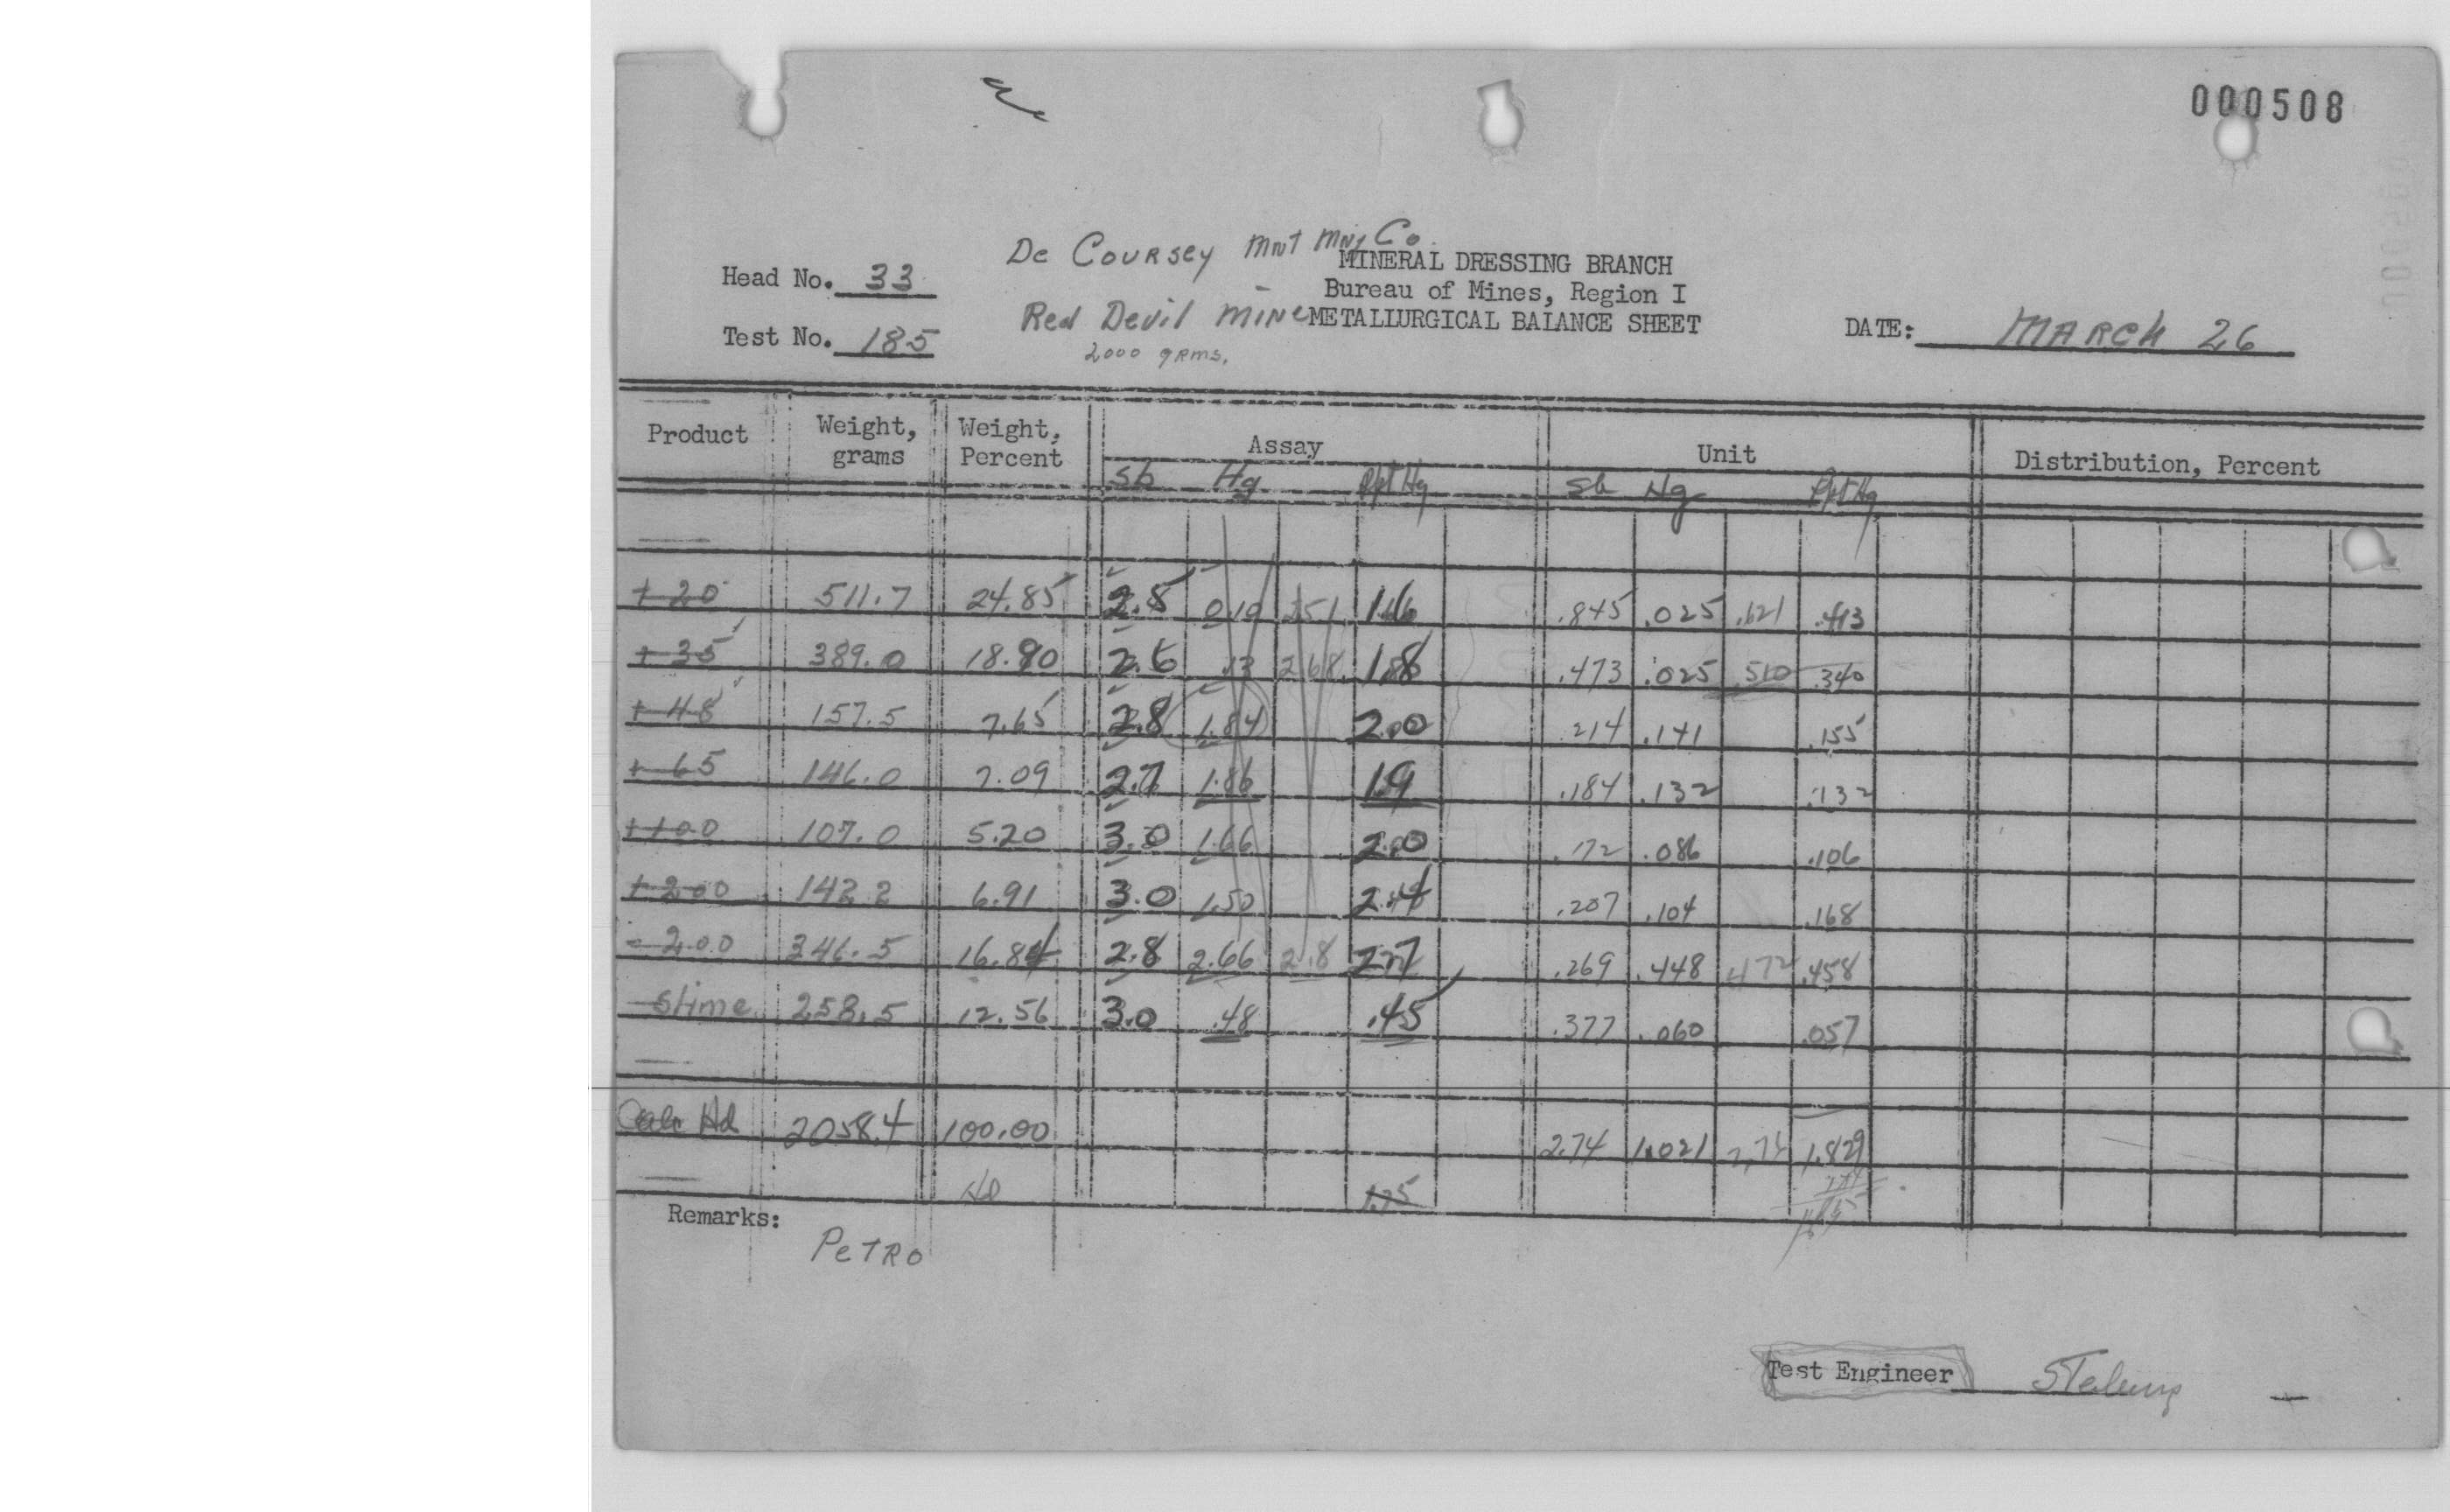 000508
De Coursey Mnt Mng Co.
Head No. 33
MINERAL DRESSING BRANCH
Bureau of Mines, Region I
Red Devil Mine METALLURGICAL BALANCE SHEET
Test No. 185
DATE: MARCH 26
2000 grms.
Product Weight, grams Weight, Percent Assay Unit Distribution, Percent
Sb Hg Rpt Hg Sb Hg Rpt Hg
+ 20 511.7 24.85 2.5 0.10 2.51 1.66 .845 .025 .621 .413
+ 35 389.0 18.90 2.5 .13 2.68 1.8 .473 .025 .510 .340
+ 48 157.5 7.65 2.8 1.84 2.0 .214 .141 .155
+ 65 146.0 7.09 2.7 1.86 1.9 .184 .132 .132
+100 107.0 5.20 3.0 1.66 2.0 .172 .086 .106
+200 142.2 6.91 3.0 1.50 2.4 .207 .104 .168
- 200 346.5 16.84 2.8 2.66 2.8 2.7 .269 .448 .472 .458
Slime 258.5 12.56 3.0 .48 .45 .377 .060 .057
Calc Hd 2058.4 100.00 2.74 1.021 1.829
Hd 1.75
Remarks:
PETRO
Test Engineer